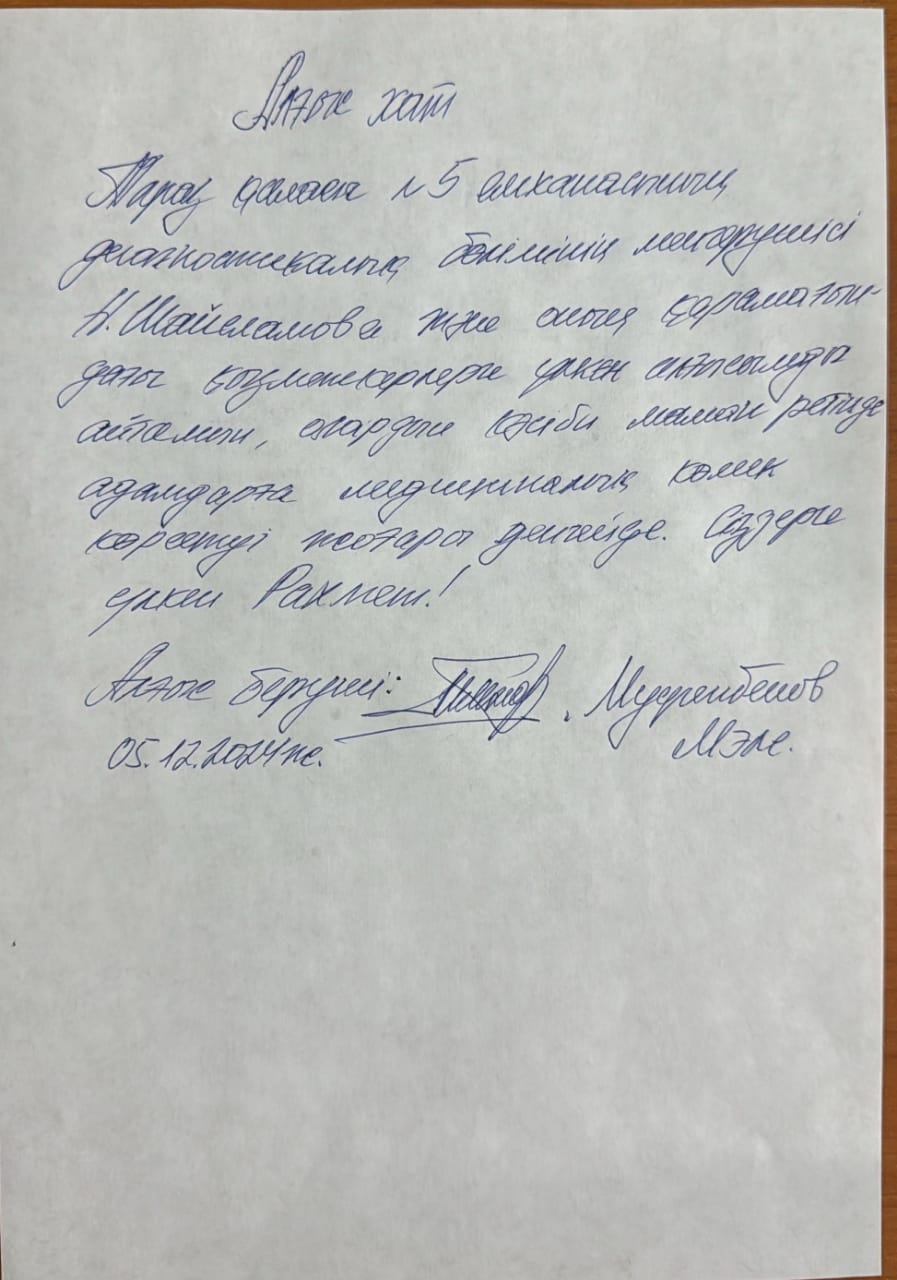 Алғыс хат
Тараз қаласы №5 емханасының
диагностикалық бөлімінің меңгерушісі
Н. Шайсламова және оның қарамағын-
дағы қызметкерлерге үлкен алғысымды
айтамын, олардың кәсіби маман ретінде
адамдарға медициналық көмек
көрсетуі жоғары деңгейде. Сіздерге
үлкен Рахмет!
Алғыс беруші:
05.12.2024 ж.